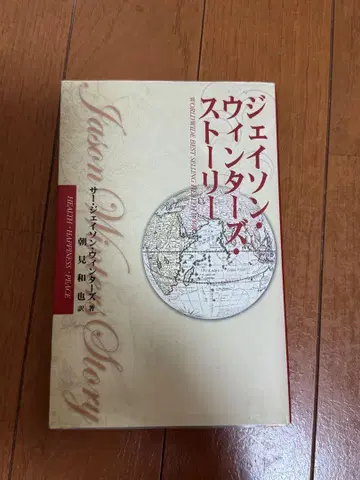 ジェイソン・
ウィンターズ・
ストーリー
WORLDWIDE BEST SELLING HEALTH
サー・ジェイソン・ウィンターズ 著
朝見和也 訳
Jason Winters Story
HEALTH・HAPPINESS・PEACE